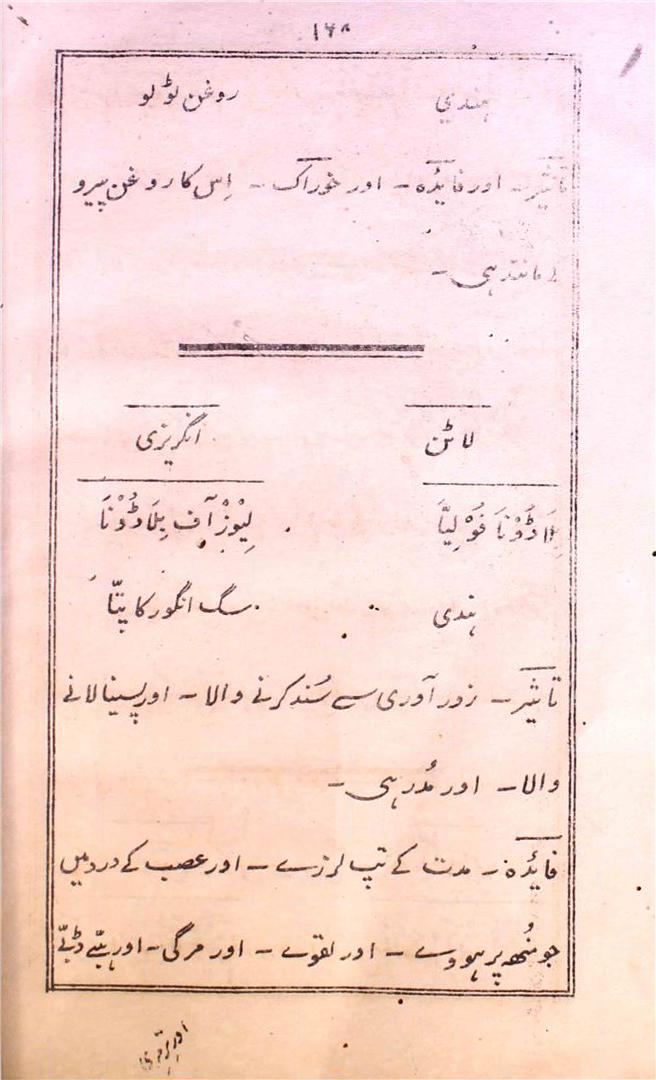 ۱۶۸
ہندي روغن لوڈلو
تاثیر۔ اور فایدہ۔ اور خوراک۔ اِس کا روغن پیرو
کے مانند ہی۔
لاٹن انگریزی
بِلاڈُوْنَا فَوْلِیَّا لِیْوْزْ آف بِلَاڈُوْنَا
ہندی سگ انگور کا پتّا
تاثیر۔ زور آوری سے سُند کرنے والا۔ اور پسینا لانے
والا۔ اور مُدر ہی۔
فائدہ۔ مدت کے تپ لرزے۔ اور عصب کے درد میں
جو مُنھ پر ہووے۔ اور لقوے۔ اور مرگی۔ اور ہبّے ڈبّے
اور